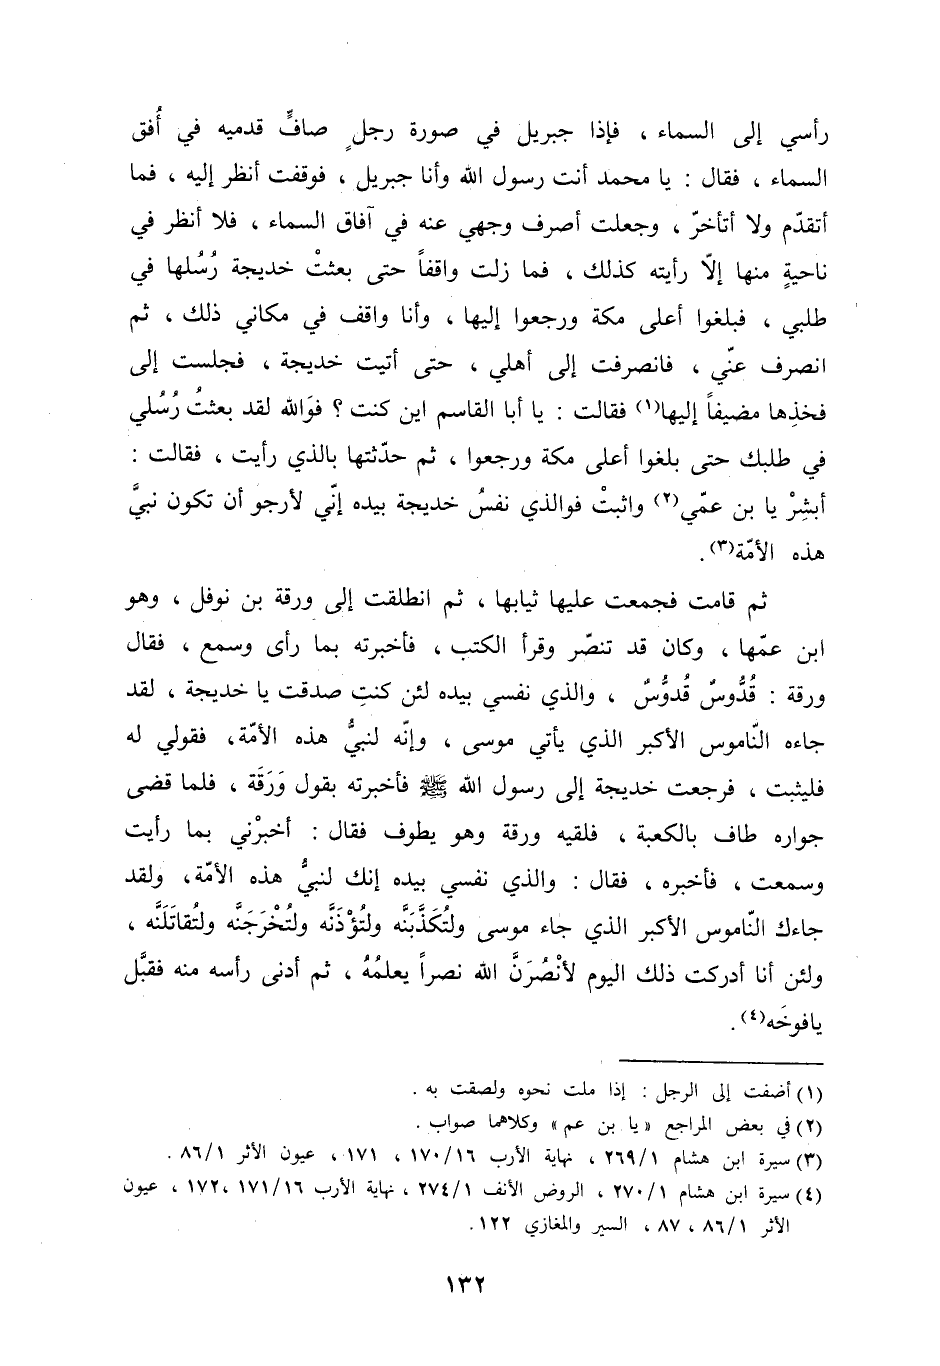 رأسي إلى السماء ، فإذا جبريل في صورة رجلٍ صافٍّ قدميه في أُفق
السماء ، فقال : يا محمد أنت رسول الله وأنا جبريل ، فوقفت أنظر إليه ، فما
أتقدّم ولا أتأخرّ ، وجعلت أصرف وجهي عنه في آفاق السماء ، فلا أنظر في
ناحيةٍ منها إلاّ رأيته كذلك ، فما زلت واقفاً حتى بعثتْ خديجة رُسُلها في
طلبي ، فبلغوا أعلى مكة ورجعوا إليها ، وأنا واقف في مكاني ذلك ، ثم
انصرف عنّي ، فانصرفت إلى أهلي ، حتى أتيت خديجة ، فجلست إلى
فخذِها مضيفاً إليها(١) فقالت : يا أبا القاسم اين كنت ؟ فوَالله لقد بعثتُ رُسُلي
في طلبك حتى بلغوا أعلى مكة ورجعوا ، ثم حدّثتها بالذي رأيت ، فقالت :
أبشِرْ يا بن عمّي(٢) واثبتْ فوالذي نفسُ خديجة بيده إنّي لأرجو أن تكون نبيَّ
هذه الأمّة(٣).
ثم قامت فجمعت عليها ثيابها ، ثم انطلقت إلى ورقة بن نوفل ، وهو
ابن عمّها ، وكان قد تنصّر وقرأ الكتب ، فأخبرته بما رأى وسمع ، فقال
ورقة : قُدُّوسٌ قُدوُّسٌ ، والذي نفسي بيده لئن كنتِ صدقت يا خديجة ، لقد
جاءه النّاموس الأكبر الذي يأتي موسى ، وإنّه لنبيُّ هذه الأمّة، فقولي له
فليثبت ، فرجعت خديجة إلى رسول الله ﷺ فأخبرته بقول وَرَقَة ، فلما قضى
جواره طاف بالكعبة ، فلقيه ورقة وهو يطوف فقال : أخبرْني بما رأيت
وسمعت ، فأخبره ، فقال : والذي نفسي بيده إنك لنبيُّ هذه الأمّة، ولقد
جاءك النّاموس الأكبر الذي جاء موسى ولتُكَذَّبَنَّه ولتُؤْذَنَّه ولتُخْرَجَنَّه ولتُقاتَلَنَّه ،
ولئن أنا أدركت ذلك اليوم لأنْصُرَنَّ الله نصراً يعلمُهُ ، ثم أدنى رأسه منه فقبَّل
يافوخَه(٤).
(١) أضفت إلى الرجل : إذا ملت نحوه ولصقت به .
(٢) في بعض المراجع «يا بن عم» وكلاهما صواب .
(٣) سيرة ابن هشام ٢٦٩/١ ، نهاية الأرب ١٧٠/١٦ ، ١٧١ ، عيون الأثر ٨٦/١ .
(٤) سيرة ابن هشام ٢٧٠/١ ، الروض الأنف ٢٧٤/١ ، نهاية الأرب ١٧١/١٦ ،١٧٢ ، عيون
الأثر ٨٦/١ ، ٨٧ ، السير والمغازي ١٢٢ .
١٣٢